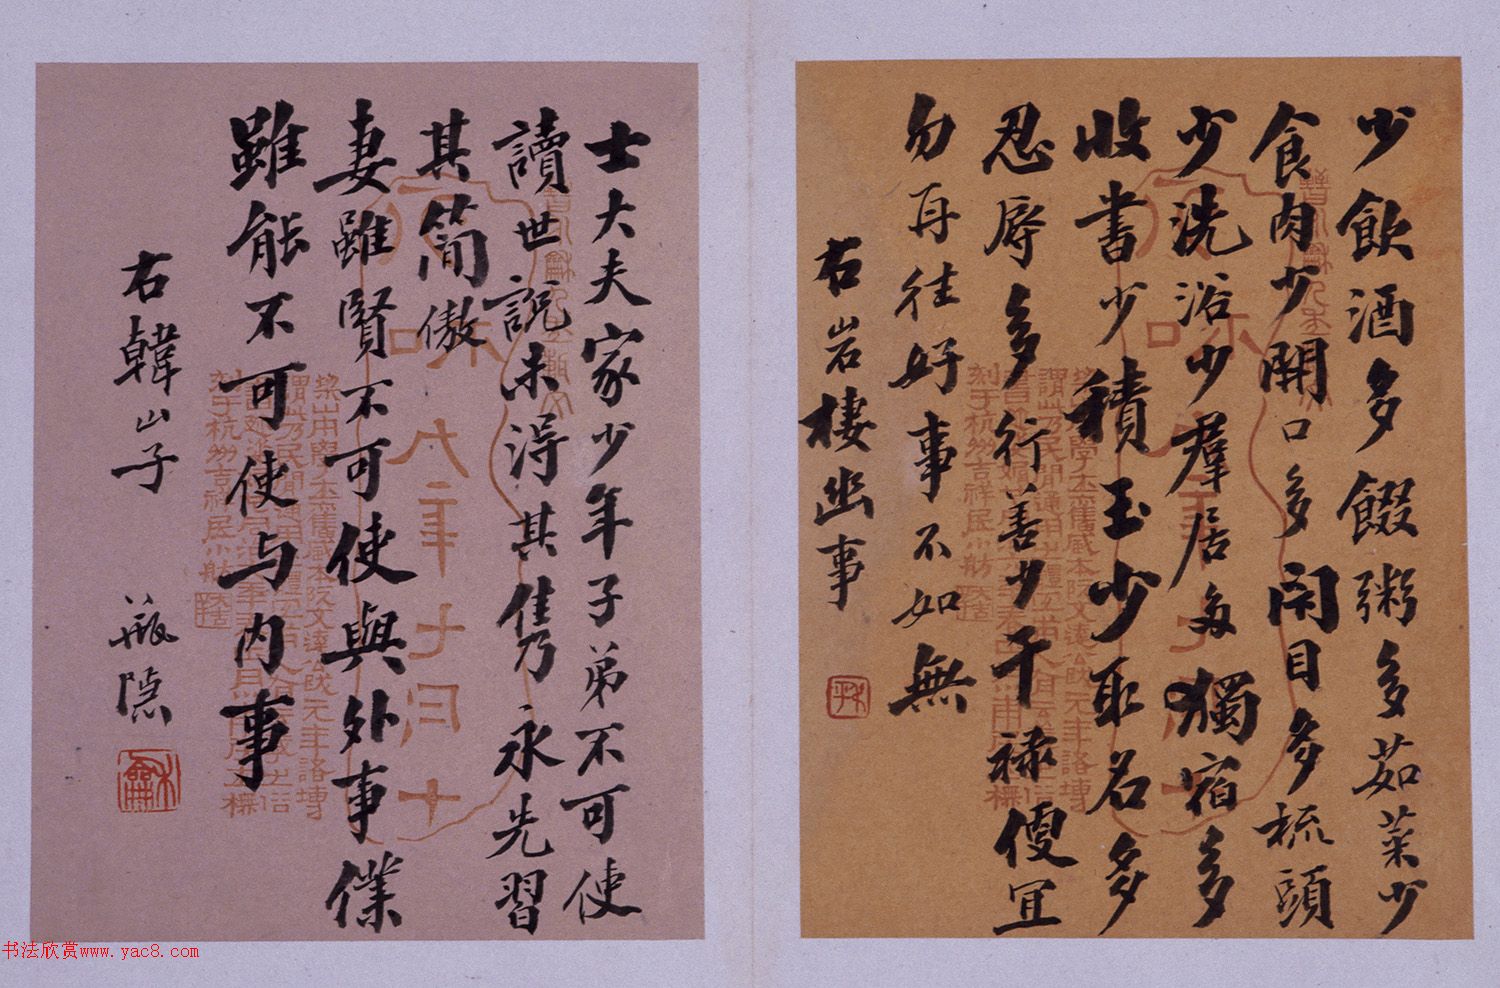 少飲酒多餟粥多茹菜少
食肉少開口多閉目多梳頭
少洗浴少羣居多獨宿多
收書少積玉少取名多
忍辱多行善少干祿便宜
勿再往好事不如無
右岩棲幽事
士大夫家少年子弟不可使
讀世説未得其隽永先習
其簡傲
妻雖賢不可使與外事僕
雖能不可使与内事
右韓山子 瓶隐
书法欣赏www.yac8.com